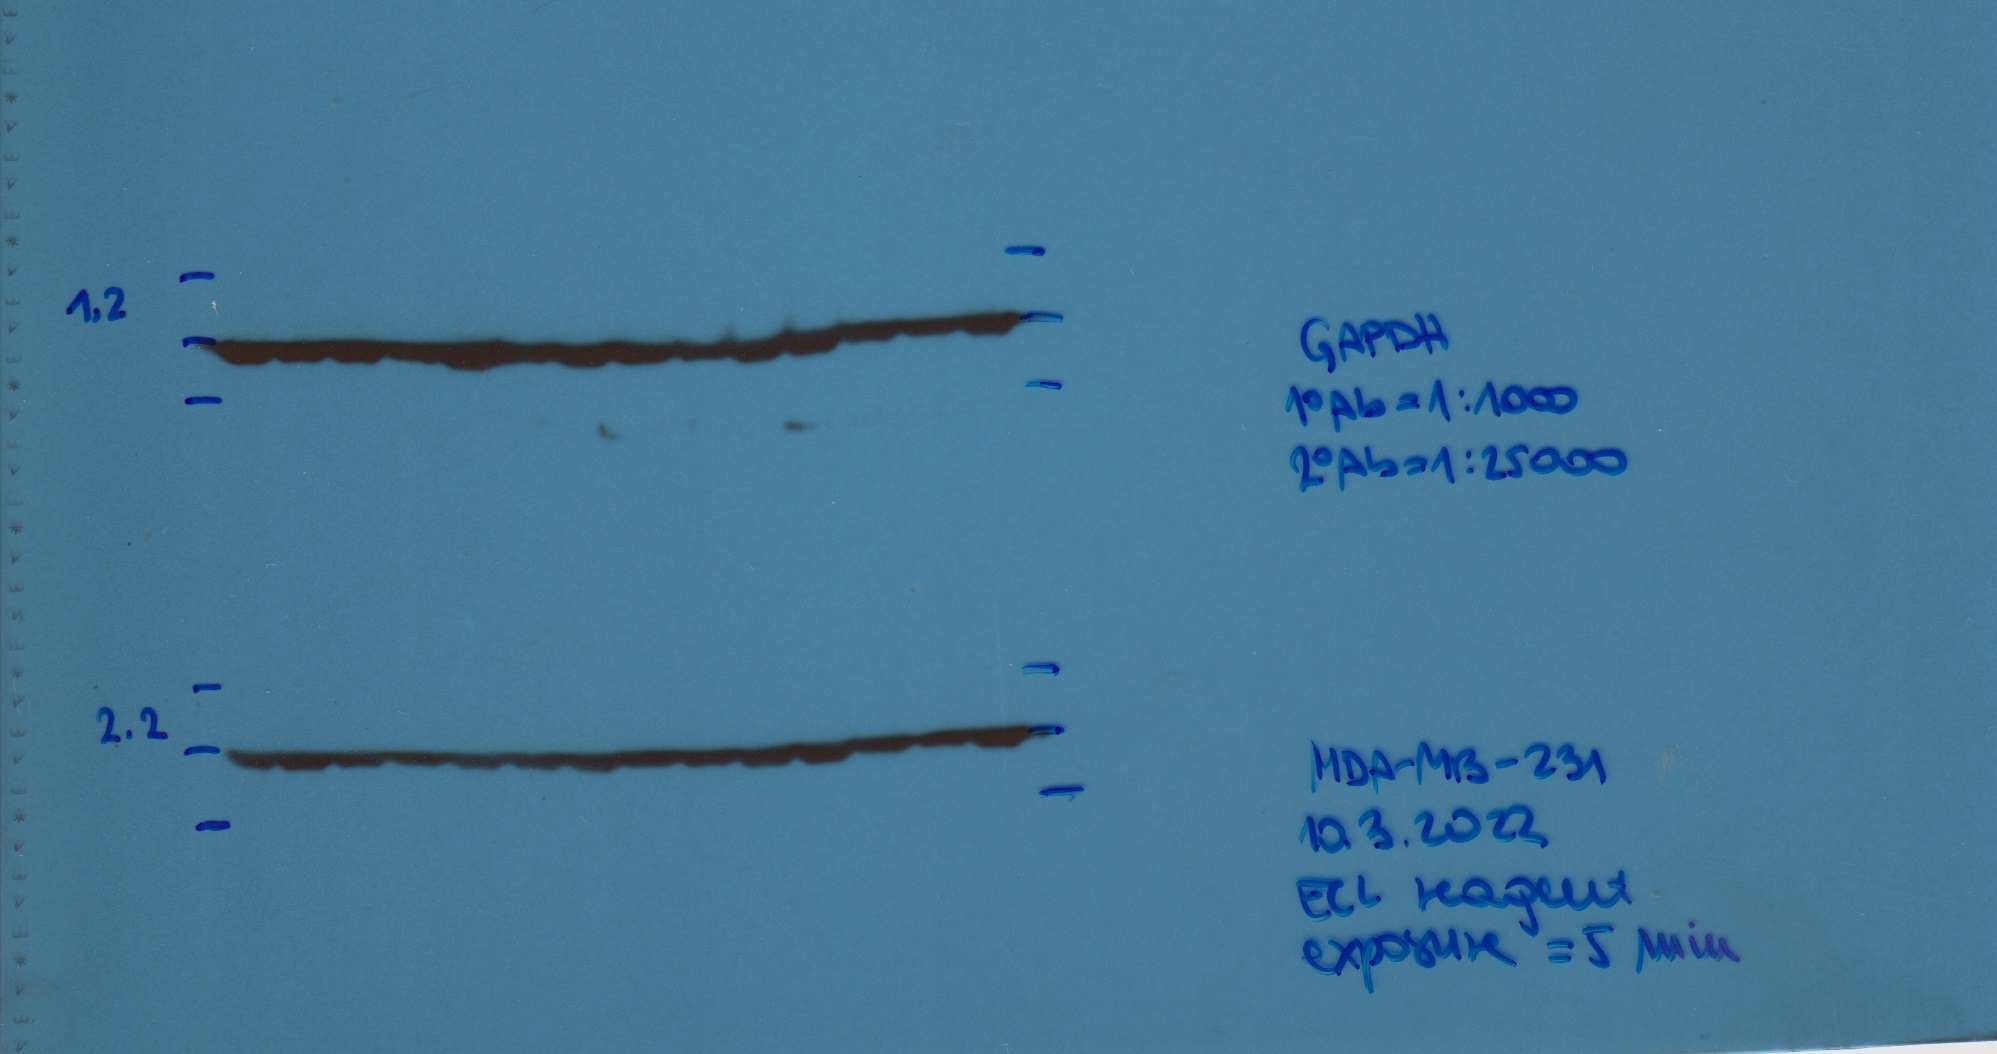 1,2
GAPDH
1º Ab = 1:1000
2º Ab = 1:25000
2.2
MDA-MB-231
10.3.2022
ECL reagent
exposure = 5 min